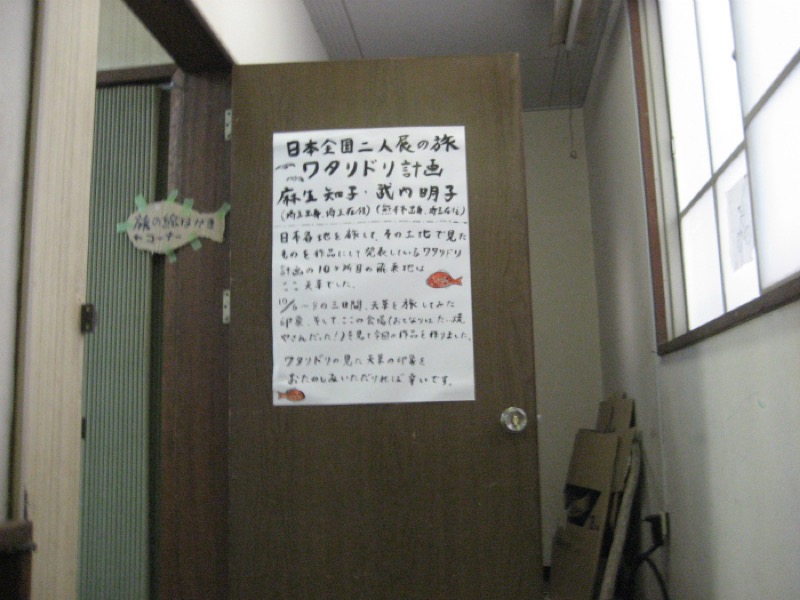 旅の絵はがき
コーナー
日本全国二人展の旅
ワタリドリ計画
麻生知子・武内明子
(埼玉出身、埼玉在住)(熊本出身、埼玉在住)
日本各地を旅して、その土地で見た
ものを作品にして発表しているワタリドリ
計画の10ヶ所目の飛来地は
ここ天草でした。
の三日間、天草を旅してみた
印象、そしてここの会場(おとなりはたい焼
やさんだった!)を見て今回の作品を作りました。
ワタリドリの見た天草の印象を
おたのしみいただければ幸いです。